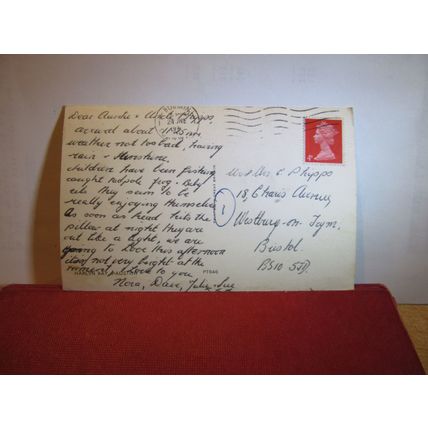 Dear Auntie + Uncle Phipps
arrived about 11.45 am
weather not too bad, having
rain + sunshine,
children have been fishing
caught tadpole frog - baby
eels they seem to be
really enjoying themselves
As soon as head hits the
pillow at night they are
out like a light, we are
going to Looe this afternoon
its not very bright at the
moment, love to you
Nora, Dave, Julie, Sue
HARLYN BAY, PADSTOW
PT946
1
Mr + Mrs C Phipps
18, Charis Avenue,
Westbury-on-Tym,
Bristol.
BS10 5JD.